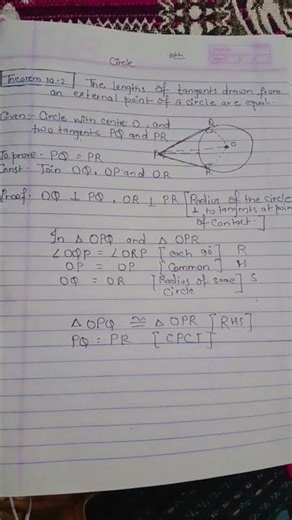 Circle 10th
Theorem 10.2 The lengths of tangents drawn from
an external point of a circle are equal.
Given:- Circle with cente O, and
two tangents PQ and PR
To prove:- PQ = PR
Const:- Join OQ, OP and OR
Proof:- OQ ⊥ PQ, OR ⊥ PR [Radius of the circle
⊥ to tangents at point
of contact]
In △ OPQ and △ OPR
∠OQP = ∠ORP [each 90°] R
OP = OP [Common] H
OQ = OR [Radius of same S
Circle]
△ OPQ ≅ △ OPR [RHS]
PQ = PR [CPCT]